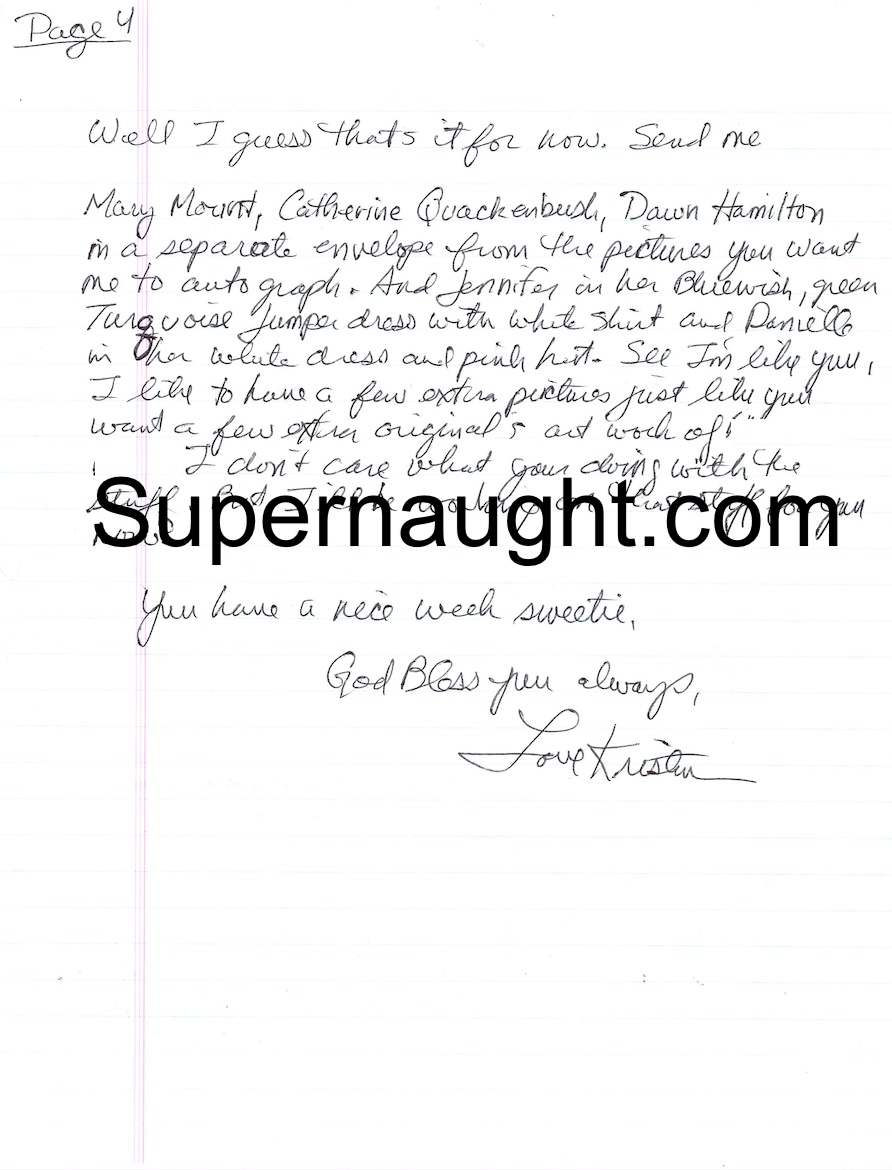 Page 4
Well I guess thats it for now. Send me
Mary Mount, Catherine Quackenbush, Dawn Hamilton
in a separate envelope from the pictures you want
me to autograph. And Jennifer in her Bluewish, green
Turqvoise Jumper dress with white shirt and Danielle
in her white dress and pink hat. See I'm like you,
I like to have a few extra pictures just like you
want a few extra original's art work of!"
I don't care what your doing with the
stuff. But I'll be working on that stuff for you
Supernaught.com
You have a nice week sweetie,
God Bless you always,
Love Kristen